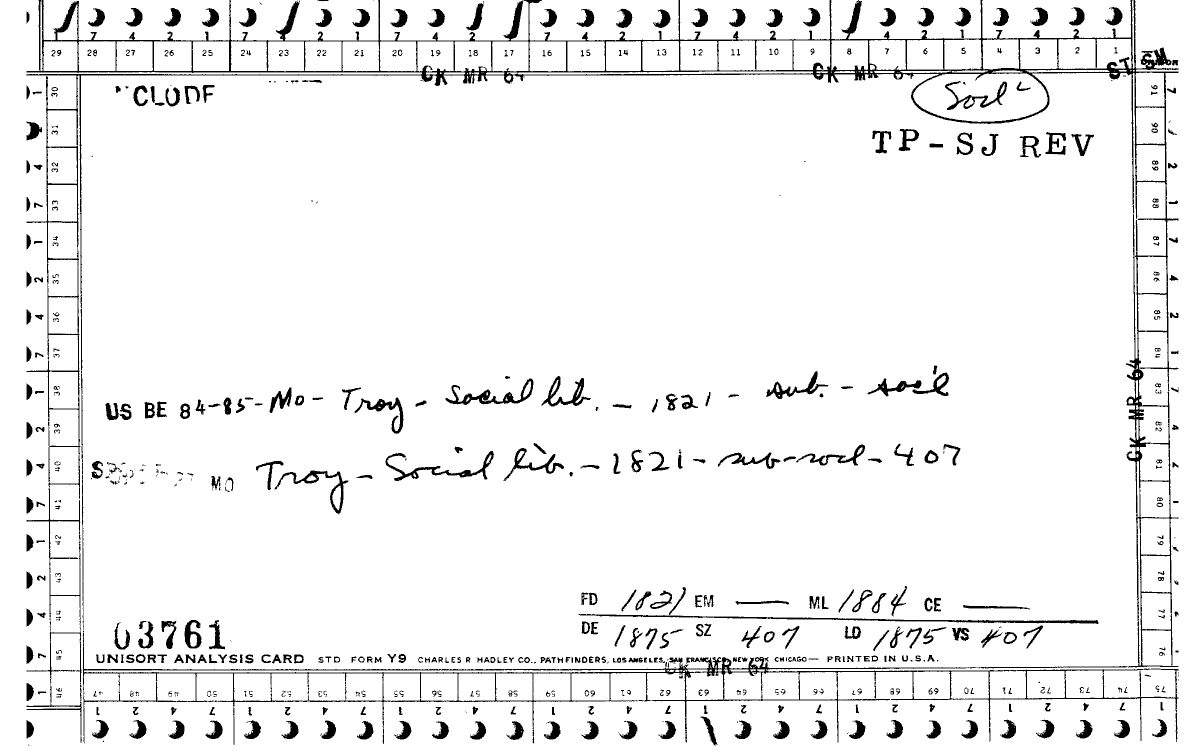 7 4 2 1 7 4 2 1 7 4 2 1 7 4 2 1 7 4 2 1 7 4 2 1 7 4 2 1
29 28 27 26 25 24 23 22 21 20 19 18 17 16 15 14 13 12 11 10 9 8 7 6 5 4 3 2 1
CK MR 64 CK MR 64 ST
CLODF
Soc'l
TP-SJ REV
US BE 84-85-Mo- Troy - Social lib. - 1821 - sub. - soc'l
MO Troy - Social lib. - 1821 - sub-socl - 407
FD 1821 EM — ML 1884 CE —
DE 1875 SZ 407 LD 1875 VS 407
03761
UNISORT ANALYSIS CARD STD FORM Y9 CHARLES R HADLEY CO., PATHFINDERS, LOS ANGELES, SAN FRANCISCO, NEW YORK, CHICAGO— PRINTED IN U.S.A.
CK MR 64
30 31 32 33 34 35 36 37 38 39 40 41 42 43 44 45 46
47 48 49 50 51 52 53 54 55 56 57 58 59 60 61 62 63 64 65 66 67 68 69 70 71 72 73 74 75
91 90 89 88 87 86 85 84 83 82 81 80 79 78 77 76
CK MR 64